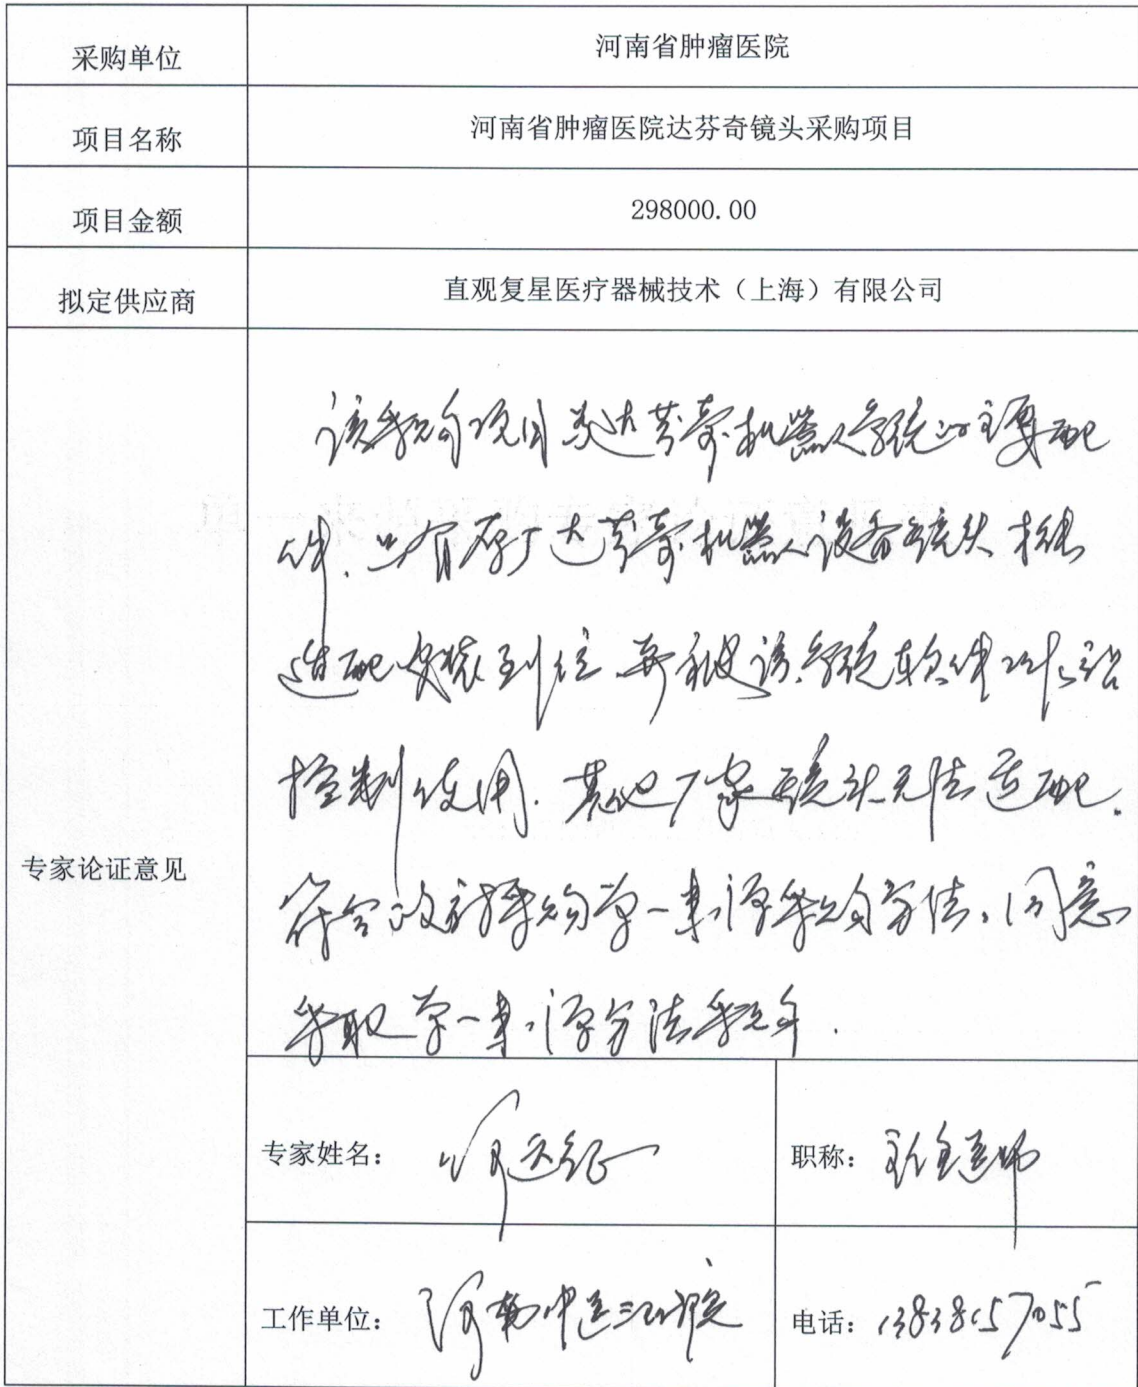 采购单位 河南省肿瘤医院
项目名称 河南省肿瘤医院达芬奇镜头采购项目
项目金额 298000.00
拟定供应商 直观复星医疗器械技术（上海）有限公司
专家论证意见
该采购项目为达芬奇机器人系统的主要配
件，只有原厂达芬奇机器人设备镜头才能
适配安装到位，再被该系统软件工作站
控制使用．其他厂家镜头无法适配．
符合政府采购单一来源采购方法，同意
采取单一来源方法采购．
专家姓名：
职称：主任医师
工作单位：河南中医三附院
电话：13838157055